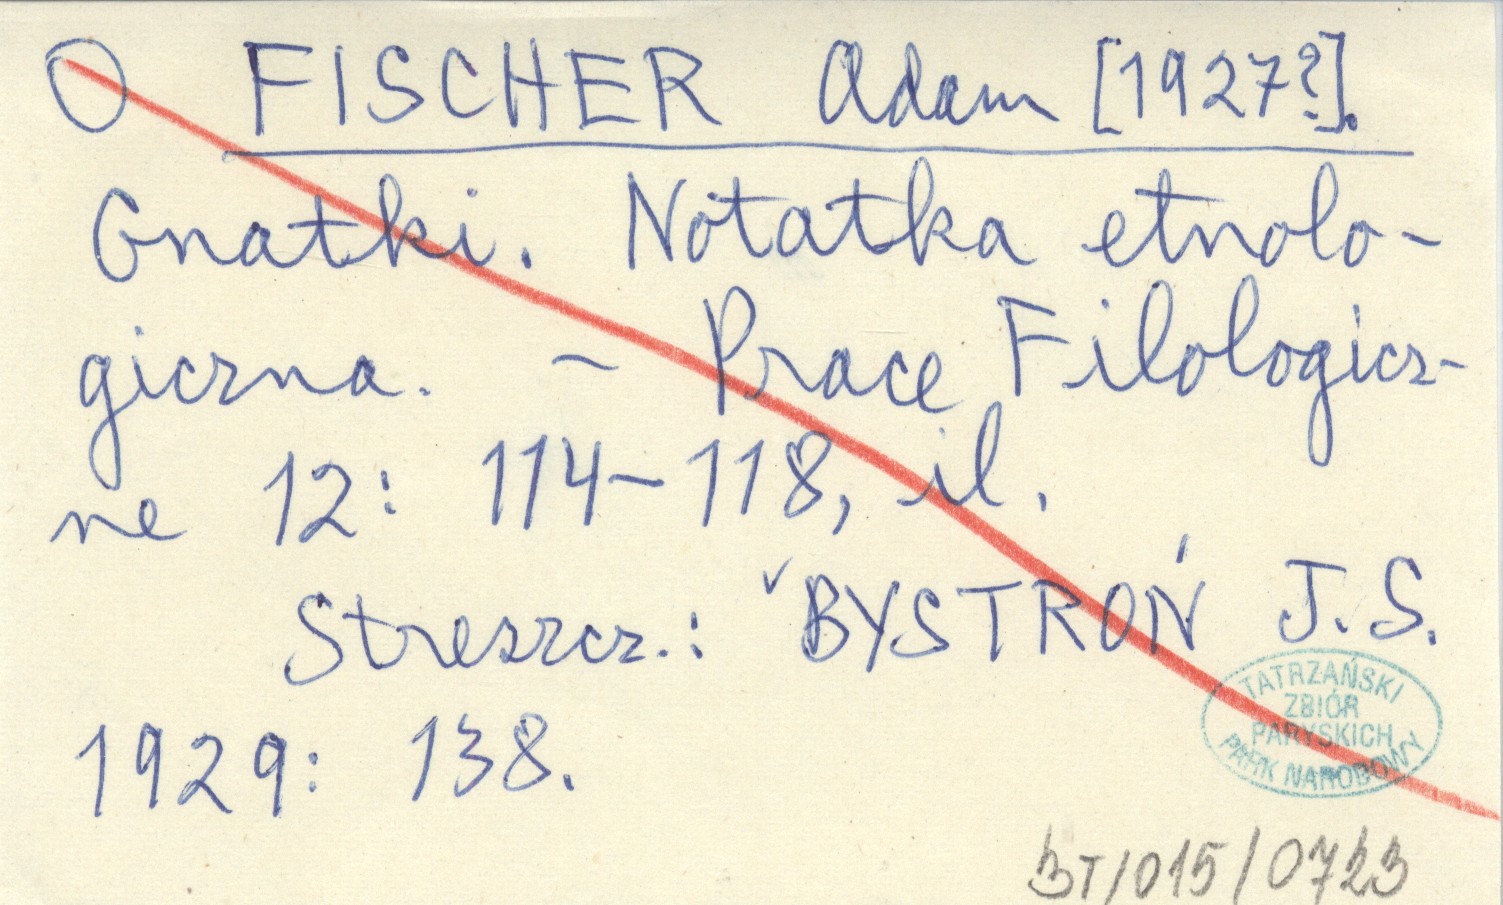 O FISCHER Adam [1927?].
Gnatki. Notatka etnolo-
giczna. - Prace Filologicz-
ne 12: 114-118, il.
Streszcz.: ᵛBYSTROŃ J. S.
1929: 138.
TATRZAŃSKI
ZBIÓR
PARYSKICH
PARK NARODOWY
BT/015/0723